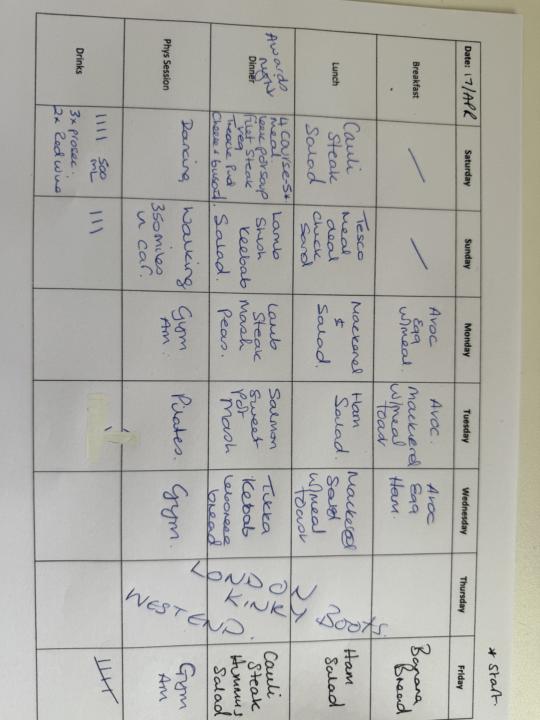 * Start.
Date: 17/APR
Saturday
Sunday
Monday
Tuesday
Wednesday
Thursday
Friday
Breakfast
—
—
Avoc
Egg
w/meal.
Avoc.
Mackerel
w/meal
Avoc
Egg
Ham.
Banana
Bread
Lunch
Cauli
Steak
Salad
Tesco
Meal
deal
chick
Mackerel
&
Salad.
Ham
Salad.
Mackerel
Salad
w/meal
BOOTS.
Ham
Salad
Awards
Night
Dinner
4 course-5*
Meal
leek pot soup
fillet Steak
veg
Treacle Pud
Cheese + biscuit.
Lamb
Shish
Keebab
Salad.
Lamb
Steak
Mash
Peas.
Salmon
Sweet
Pot
Mash
Tikka
Kebab
Lebanese
bread
LONDON
Cauli
Steak
Hummus
Salad
Phys Session
Dancing
Walking
350 miles
in car.
Gym
Am.
Pilates.
Gym.
WEST END.
Gym
Am
Drinks
IIII 500
ML
3x prosec.
2x Red wine
III